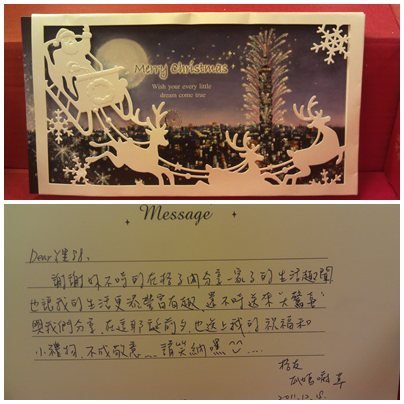 Merry Christmas
Wish your every little
dream come true
Message
Dear
謝謝你不時的在格子內分享家子的生活趣聞
也讓我的生活更添豐富有趣,還不時送來"大驚喜"
與我們分享,在這耶誕前夕,也送上我的祝福和
小禮物,不成敬意...請笑納嘿....
格友
2011.12.8.